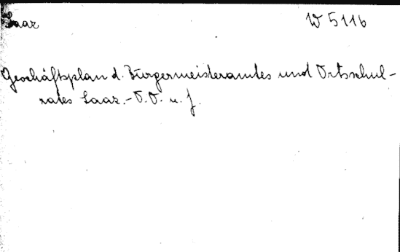 Saar W 5116
Geschäftsplan d. Bürgermeisteramtes und Ortsschul-
rates Saar. - O.O. u. J.